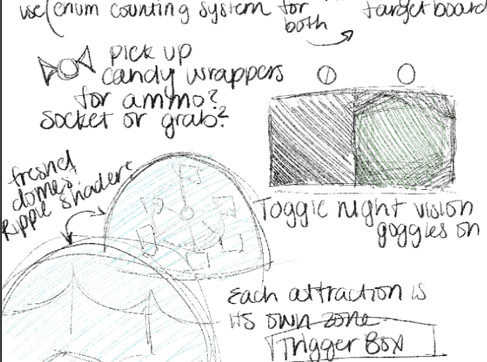 use/enum counting system for
both
target board
pick up
candy wrappers
for ammo?
socket or grab?
fresnel
domes
Ripple shaders
Toggle night vision
goggles on
Each attraction is
its own zone
Trigger Box